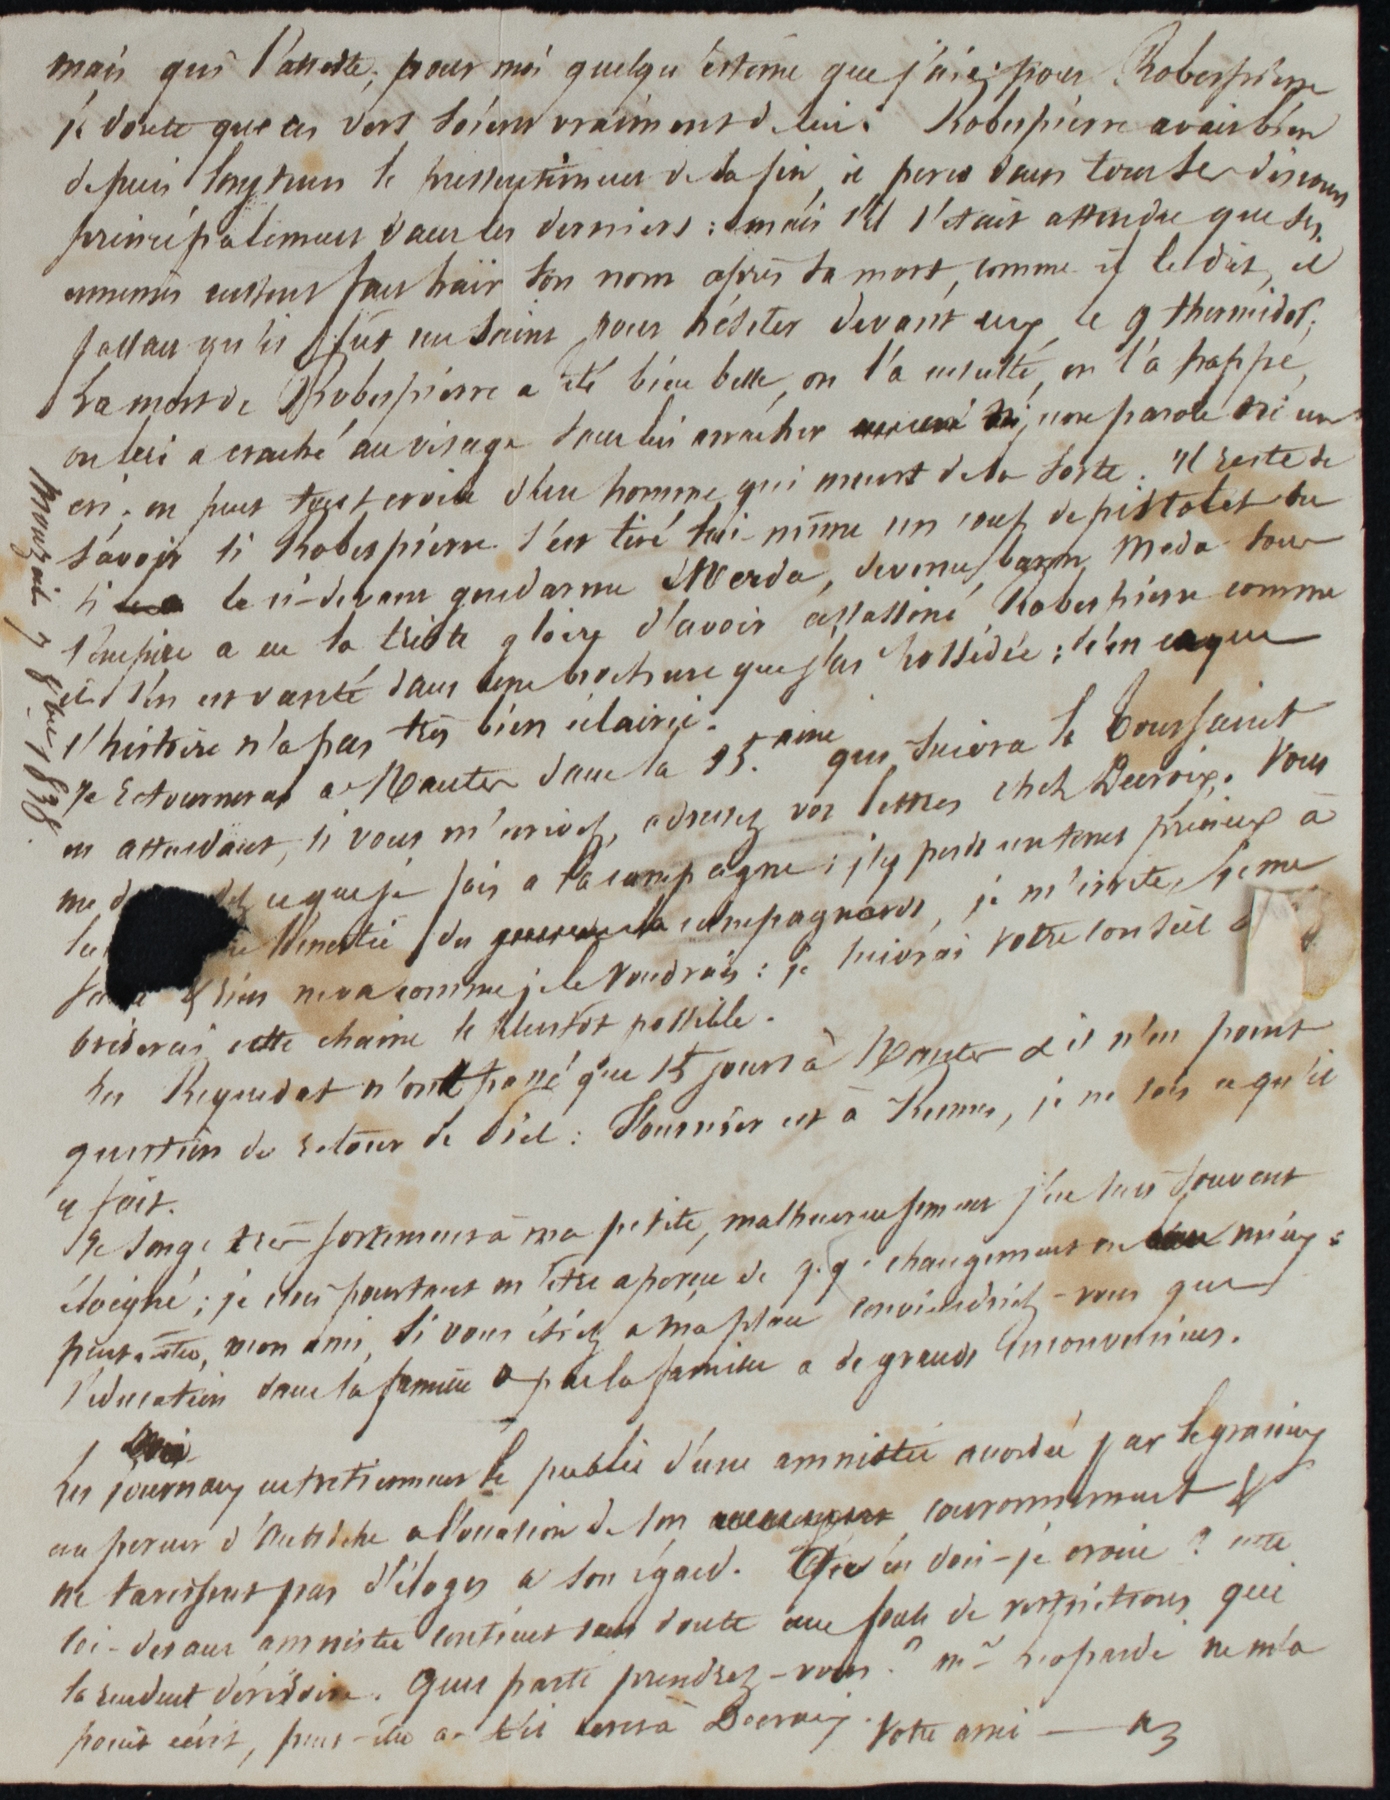 mais qui l'atteste; pour moi quelqu'estime que j'aie pour Robespierre
je doute que ces vers soient vraiment de lui. Robespierre avait bien
depuis longtems le pressentiment de sa fin, il perce dans tous ses discours
principalement dans les derniers: mais s'il s'était attendu que ses
ennemis eussent fait haïr son nom après sa mort, comme il le dit, il
fallait qu'il fût un saint pour hésiter devant eux le 9 thermidor;
La mort de Robespierre a été bien belle, on l'a insulté, on l'a frappé,
on lui a craché au visage sans lui arracher ni une parole ni un
cri. on peut tout croire d'un homme qui meurt de la sorte. Il reste de
savoir si Robespierre s'est tiré lui-même un coup de pistolet ou
si le ci-devant gendarme Merda, devenu baron Meda sous
l'empire a eu la triste gloire d'avoir assassiné Robespierre comme
il s'en est vanté dans une brochure que j'ai possédée: c'en est que
l'histoire n'a pas très bien éclairci.
Je retournerai à Nantes dans la 15.aine qui suivra la Toussaint
en attendant, si vous m'écrivez, adressez vos lettres chez Decroix. Vous
me ce que je fais à la campagne: j'y perds un tems précieux à
du campagnards, je m'irrite, je me
rien ne va comme je le voudrais: je suivrai votre conseil
briserai cette chaîne le plustôt possible.
Les n'ont passé que 15 jours à Nantes & il n'est point
question du retour de : Fournier est à Rennes, je ne sais ce qu'il
y fait.
Je songe très fortement à ma petite, malheureusement j'en suis souvent
éloigné; je crois pourtant m'être aperçu de q.q. changement en mieux:
peut-être, mon ami, si vous étiez à ma place conviendriez-vous que
l'éducation dans la famille & par la famille a de grands inconvéniens.
Les journaux entretiennent le public d'une amnistie accordée par le gracieux
empereur d'Autriche à l'occasion de son couronnement &
ne tarissent pas d'éloges à son égard. Qu'en dois-je croire? cette
soi-disant amnistie contient sans doute une foule de restrictions qui
la rendent dérisoire. Quel parti prendrez-vous? mr ne m'a
point écrit, peut-être a-t-il écrit à Decroix. Votre ami
8bre 1838.